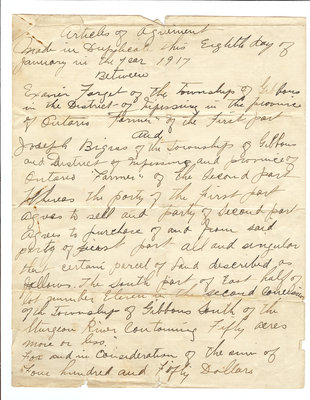 Articles of Agreement
Made in Duplicate this Eighth day of
January in the year 1917
Between
Exavier Forget of the Township of Gibbons
in the District of Nipissing in the province
of Ontario "Farmer" of the First part
And
Joseph of the Township of Gibbons
and District of Nipissing and province of
Ontario "Farmer" of the Second part
Whereas the party of the First part
agrees to sell and party of Second part
agrees to purchase of and from said
party of First part all and singular
that certain parcel of land described as
follows. The South part of East half of
lot number Eleven in the second concession
of the Township of Gibbons South of the
Sturgeon River Containing Fifty acres
more or less.
For and in Consideration of the sum of
Four hundred and Fifty Dollars